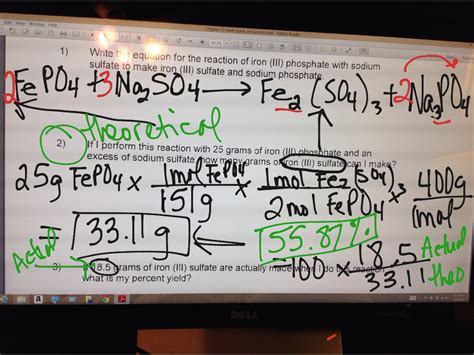 1) Write the equation for the reaction of iron (III) phosphate with sodium
sulfate to make iron (III) sulfate and sodium phosphate.
2FePO4 + 3Na2SO4 → Fe2(SO4)3 + 2Na3PO4
theoretical
2) If I perform this reaction with 25 grams of iron (III) phosphate and an
excess of sodium sulfate, how many grams of iron (III) sulfate can I make?
25g FePO4 x 1mol FePO4 / 151g x 1mol Fe2(SO4)3 / 2mol FePO4 x 400g / 1mol
= 33.11g ← 55.87%
Actual
100 x 18.5 Actual / 33.11 theo
3) 18.5 grams of iron (III) sulfate are actually made when I do this reaction.
what is my percent yield?
DELL